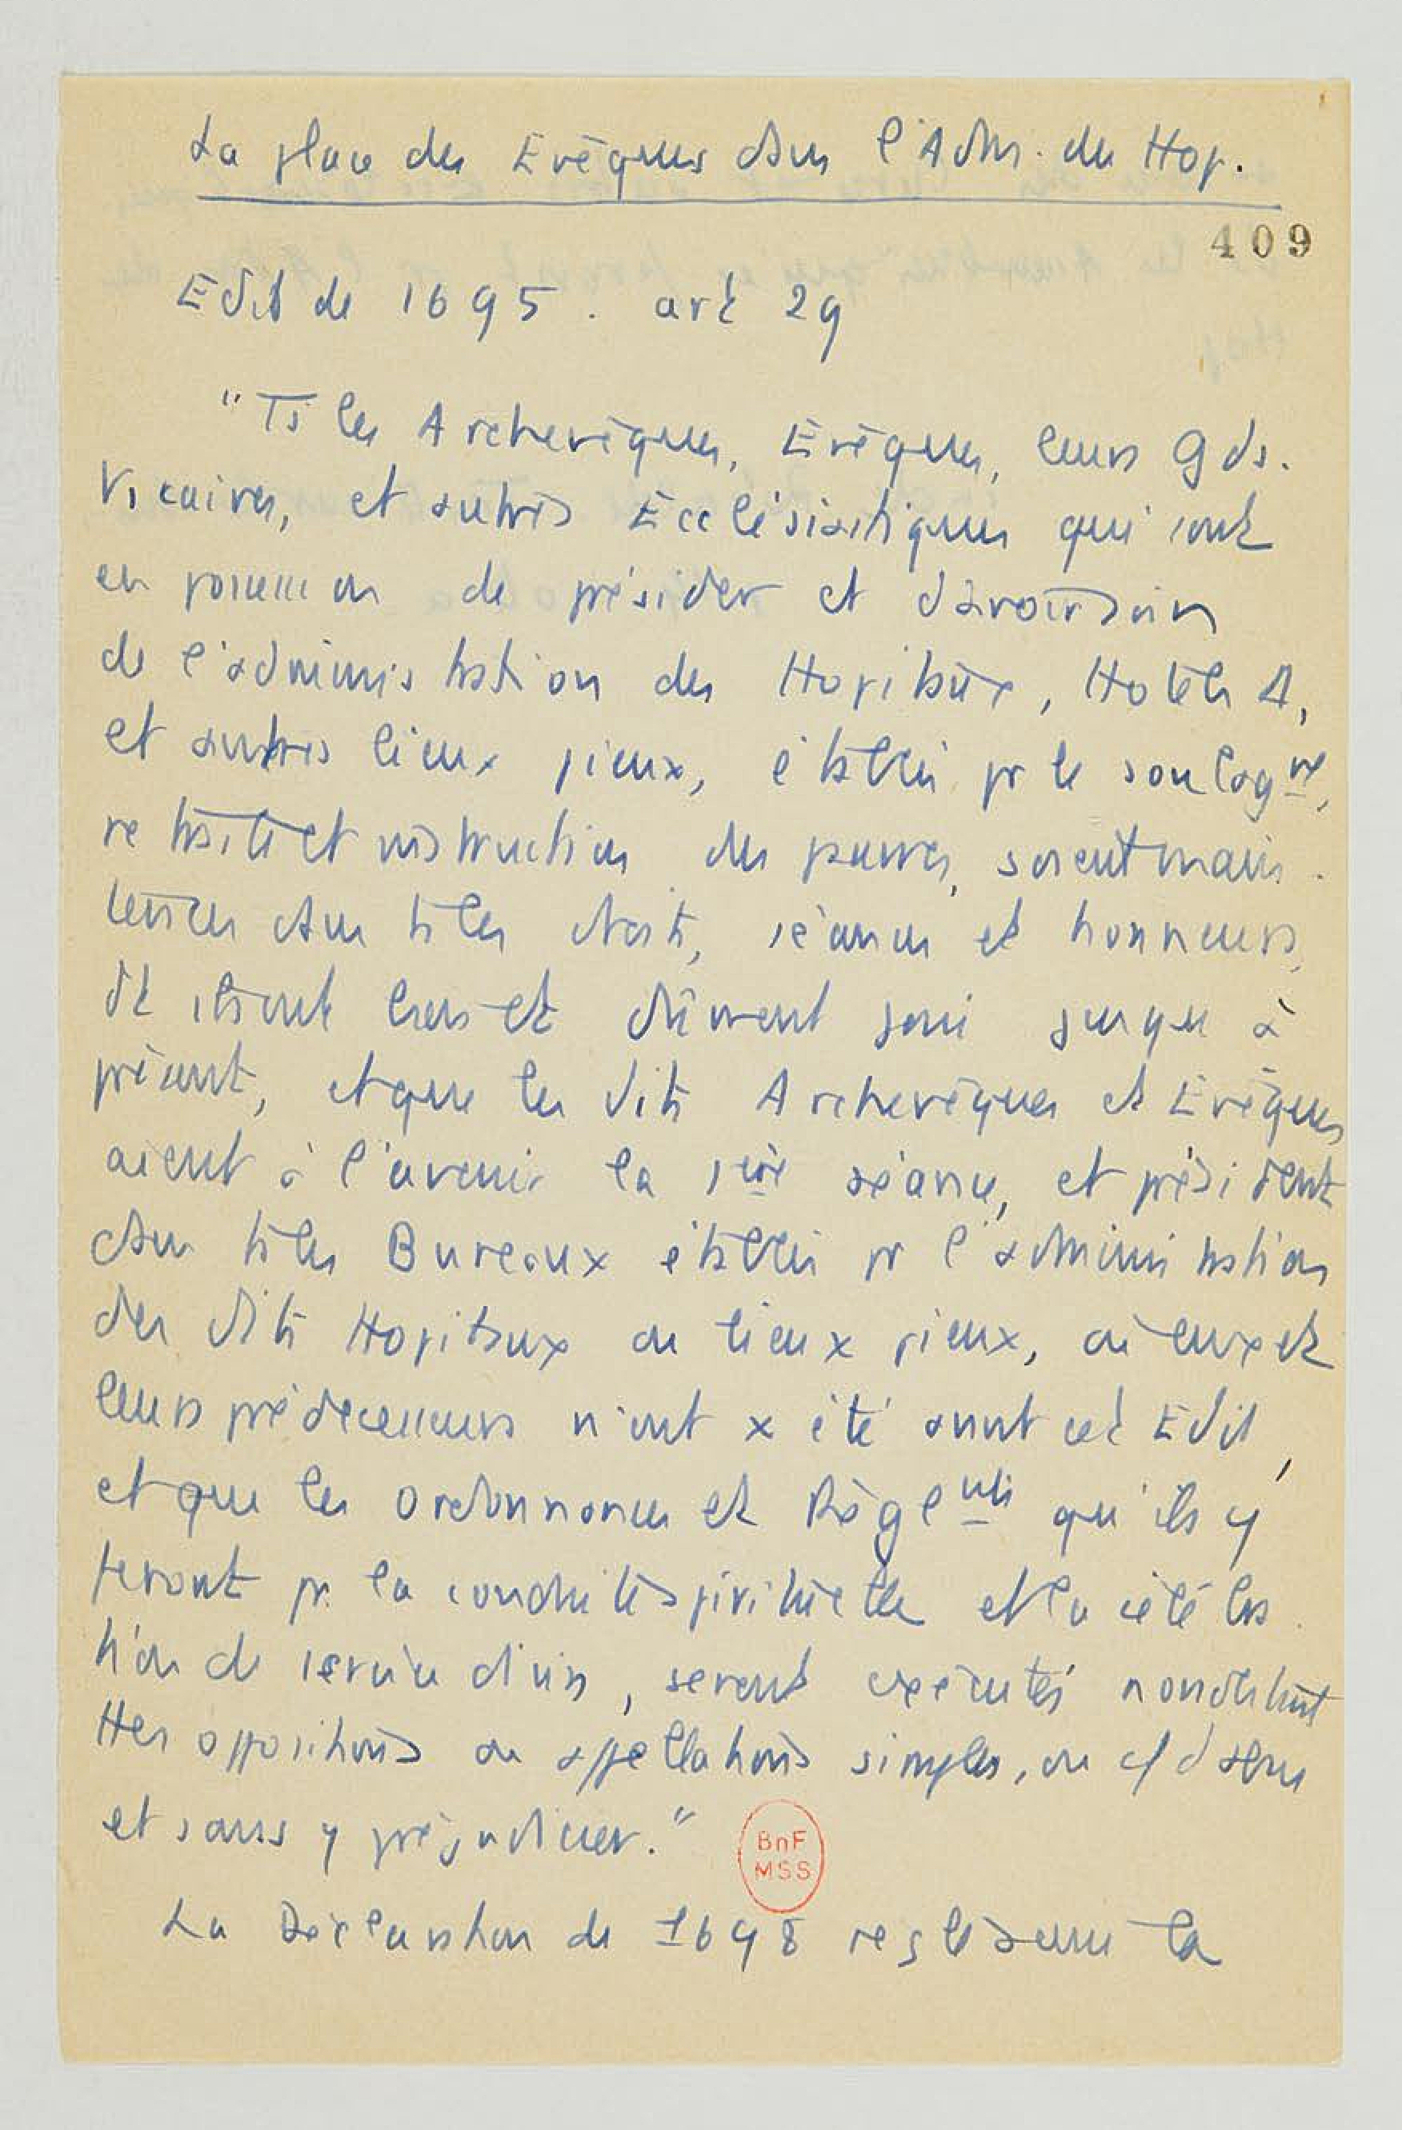 La place des Evêques dans l'Adm. des Hop.
409
Edit de 1695. art 29
"Ts les Archevêques, Evêques, leurs Gds.
Vicaires, et autres Ecclésiastiques qui sont
en possession de présider et d'avoir soin
de l'administration des Hopitaux, Hotels D,
et autres lieux pieux, établis pr le soulagnt,
retraite et instruction des pauvres, soient main-
tenus dans ts les droits, séances et honneurs,
dt ils ont bien et dûment joui jusqu'à
présent, et que les dits Archevêques et Evêques
aient à l'avenir la 1ière séance, et président
dans ts les Bureaux établis pr l'administration
des dits Hopitaux ou lieux pieux, où eux et
leurs prédecesseurs n'ont x été avant cet Edit,
et que les ordonnances et Règlmts qu'ils y
feront pr la conduite spirituelle et la célébra-
tion de service divin, seront exécutés nonobstant
ttes oppositions ou appellations simples, ou c/ d'abus
et sans y préjudicier."
BnF
MSS
La Déclaration de 1698 regle aussi la